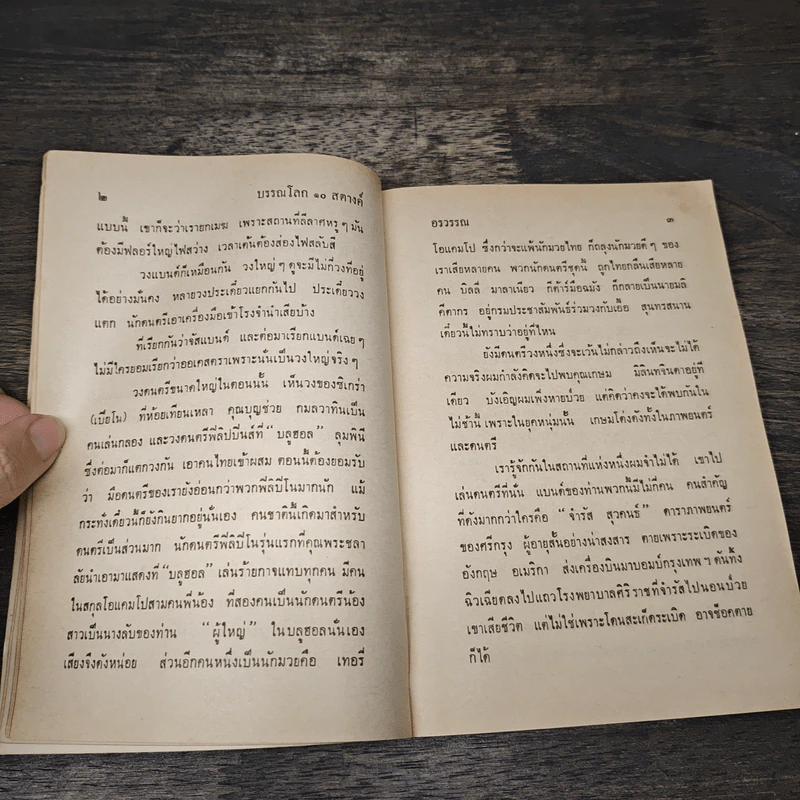 ๒ บรรณโลก ๑๐ สตางค์
แบบนี้ เขาก็จะว่าเรายกเมฆ เพราะสถานที่ลีลาศหรู ๆ มัน
ต้องมีฟลอร์ใหญ่ไฟสว่าง เวลาเต้นต้องส่องไฟสลับสี
วงแบนด์ก็เหมือนกัน วงใหญ่ ๆ ดูจะมีไม่กี่วงที่อยู่
ได้อย่างมั่นคง หลายวงประเดี๋ยวแยกกันไป ประเดี๋ยววง
แตก นักดนตรีเอาเครื่องมือเข้าโรงจำนำเสียบ้าง
ที่เรียกกันว่าจัสแบนด์ และต่อมาเรียกแบนด์เฉย ๆ
ไม่มีใครยอมเรียกว่าออเคสตราเพราะนั่นเป็นวงใหญ่จริง ๆ
วงดนตรีขนาดใหญ่ในตอนนั้น เห็นวงของซิเกร่า
(เปียโน) ที่ห้อยเทียนเหลา คุณบุญช่วย กมลวาทินเป็น
คนเล่นกลอง และวงดนตรีฟิลิปปินส์ที่ “บลูฮอล” ลุมพินี
ซึ่งต่อมาก็แตกวงกัน เอาคนไทยเข้าผสม ตอนนี้ต้องยอมรับ
ว่า มือดนตรีของเรายังอ่อนกว่าพวกฟิลิปิโนมากนัก แม้
กระทั่งเดี๋ยวนี้ก็ยังกินยากอยู่นั่นเอง คนชาตินี้เกิดมาสำหรับ
ดนตรีเป็นส่วนมาก นักดนตรีฟิลิปิโนรุ่นแรกที่คุณพระชลา
ลัยนำเอามาแสดงที่ “บลูฮอล” เล่นร้ายกาจแทบทุกคน มีคน
ในสกุลโอแคมโปสามคนพี่น้อง ที่สองคนเป็นนักดนตรีน้อง
สาวเป็นนางลับของท่าน “ผู้ใหญ่” ในบลูฮอลนั่นเอง
เสียงจึงดังหน่อย ส่วนอีกคนหนึ่งเป็นนักมวยคือ เทอรี่
อรวรรณ ๓
โอแคมโป ซึ่งกว่าจะแพ้นักมวยไทย ก็ถลุงนักมวยดี ๆ ของ
เราเสียหลายคน พวกนักดนตรีชุดนี้ ถูกไทยกลืนเสียหลาย
คน บิลลี่ มาลาเนียว ก็ต้าร์มือฉมัง ก็กลายเป็นนายมลิ
คีตากร อยู่กรมประชาสัมพันธ์ร่วมวงกับเอื้อ สุนทรสนาน
เดี๋ยวนี้ไม่ทราบว่าอยู่ที่ไหน
ยังมีดนตรีวงหนึ่งซึ่งจะเว้นไม่กล่าวถึงเห็นจะไม่ได้
ความจริงผมกำลังคิดจะไปพบคุณเกษม มิลินทจินดาอยู่ที
เดียว บังเอิญผมเพิ่งหายป่วย แต่คิดว่าคงจะได้พบกันใน
ไม่ช้านี้ เพราะในยุคหนุ่มนั้น เกษมโด่งดังทั้งในภาพยนตร์
และดนตรี
เรารู้จักกันในสถานที่แห่งหนึ่งผมจำไม่ได้ เขาไป
เล่นดนตรีที่นั่น แบนด์ของท่านพวกนี้มีไม่กี่คน คนสำคัญ
ที่ดังมากกว่าใครคือ “จำรัส สุวคนธ์” ดาราภาพยนตร์
ของศรีกรุง ผู้อายุสั้นอย่างน่าสงสาร ตายเพราะระเบิดของ
อังกฤษ อเมริกา ส่งเครื่องบินมาบอมบ์กรุงเทพ ฯ ดันทิ้ง
ฉิวเฉียดลงไปแถวโรงพยาบาลศิริราชที่จำรัสไปนอนป่วย
เขาเสียชีวิต แต่ไม่ใช่เพราะโดนสะเก็ดระเบิด อาจช็อคตาย
ก็ได้